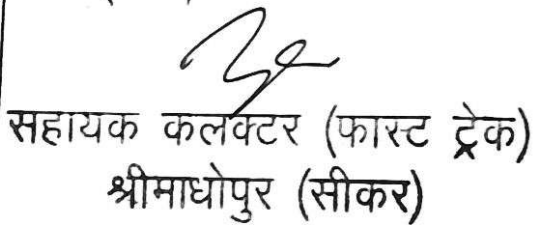 सहायक कलक्टर (फास्ट ट्रेक)
श्रीमाधोपुर (सीकर)